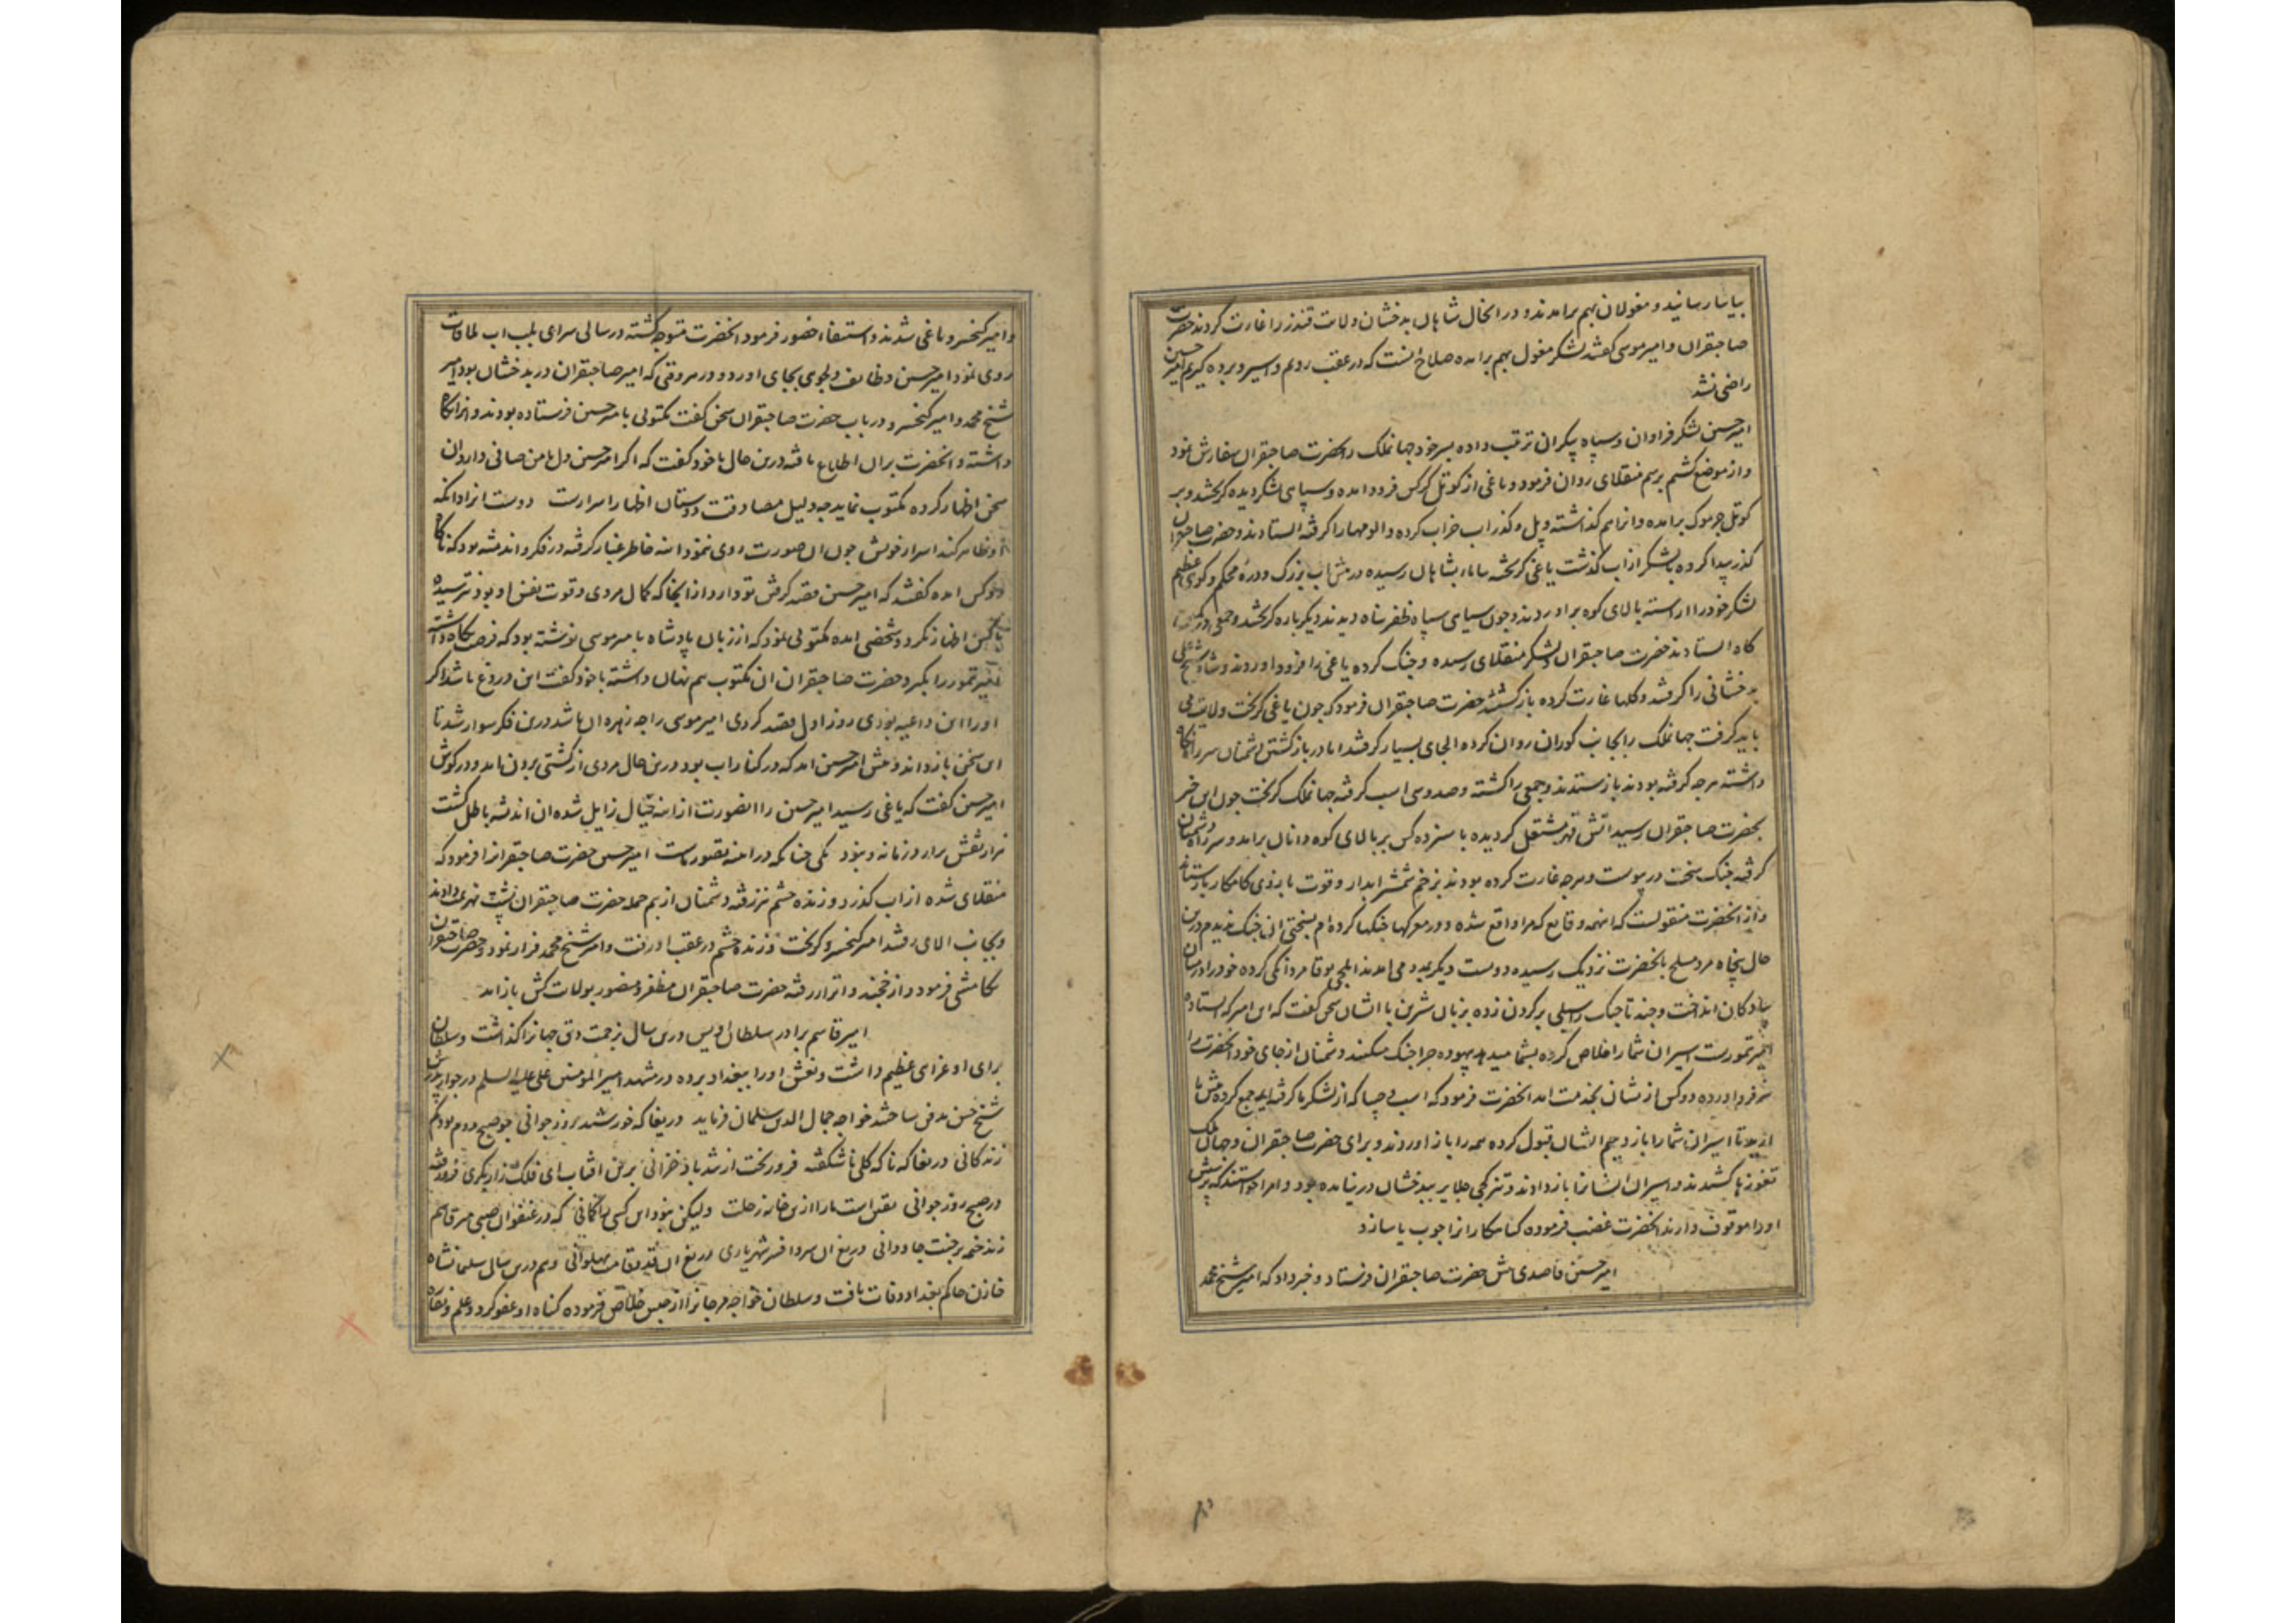 بیاسا رسانید و مغولان بهم برامدند و در انحال شاهان بدخشان ولایت قندز را غارت کردند حضرت
صاحبقران و امیر موسی گفتند لشکر مغول بهم برامده صلاح انست که در عقب رویم و اسیر و برده گیریم امیر حسین
راضی نشد
امیر حسین لشکر فراوان و سپاه بیکران ترتیب داده پسر خود جهانملک را بحضرت صاحبقران سفارش نمود
و از موضع کشم برسم منقلای روان فرمود و یاغی از کوتل کرکس فرود امده و سیاهی لشکر دیده گریختند و بر
کوتل جرموک برامده و از انهم گذشته و پل و گذر اب خراب کرده و الومها را گرفته ایستادند و حضرت صاحبقران
گذر پیدا کرده با لشکر از اب گذشت یاغی گریخته بشاهان رسیده در اب بزرگ و دره محکم و کوهی عظیم
لشکر خود را اراسته بالای کوه براوردند و چون سیاهی سپاه ظفر پناه دیدند دیگر باره گریختند و جمعی در
گاه ایستادند حضرت صاحبقران و لشکر منقلای رسیده و جنگ کرده یاغی را فرود اوردند و شاه شیخ علی
بدخشانی را گرفتند و گلها غارت کرده بازگشتند حضرت صاحبقران فرمود که چون یاغی گریخت ولایت می
باید گرفت جهانملک را بجانب کوران روان کرده الجای بسیار گرفتند اما در بازگشتن دشمنان سر راه نگاه
داشته هرچه گرفته بودند بازستدند و جمعی را کشته و صد و سی اسب گرفته جهانملک گریخت چون این خبر
بحضرت صاحبقران رسید اتش قهر مشتعل گردیده با سیزده کس بر بالای کوه دانان برامد و سر راه دشمنان
گرفته جنگ سخت درپیوست و هرچه غارت کرده بودند بزخم شمشیر ابدار و قوت بازوی کامکار بازستاند
و از انحضرت منقولست که اینهمه وقایع که مرا واقع شده و در معرکها جنگها کرده ام بسختی این جنگ ندیدم درین
حال پنجاه مرد مسلح بانحضرت نزدیک رسیده دویست دیگر بمدد می امدند ایلچی بوقا مردانگی کرده خود را در میان
پیادگان انداخت و چند تاجیک را سیلی بر گردن زده بزبان شیرین با ایشان سخن گفت که این امیر که ایستاده
امیر تیمورست اسیران شما را خلاص کرده بشما میدهد بیهوده چرا جنگ میکنید و دشمنان از جای خود انحضرت را
سر فرود اورده دو کس از یشان بخدمت امد انحضرت فرمود که اسب و جیبا که از لشکر ما گرفته اید جمع کرده پیش ما
ارید تا اسیران شما را باز دهیم ایشان قبول کرده همه را باز اوردند و برای حضرت صاحبقران و جهانملک
تغوزها کشیدند و اسیران ایشانرا باز دادند و تنزکجی جلایر ببدخشان درنیامده بود و امرا خواستند که پرسش
او را موقوف دارند انحضرت غضب فرموده گناهکارانرا چوب یاسا زد
امیر حسین قاصدی پیش حضرت صاحبقران فرستاد و خبر داد که امیر شیخ محمد
و امیر کیخسرو یاغی شدند و استدعاء حضور فرمود انحضرت متوجه گشته در سالی سرای بلب اب ملاقات
روی نمود امیر حسین وظایف دلجویی بجای اورد و در هر وقتی که امیر صاحبقران در بدخشان بود امیر
شیخ محمد و امیر کیخسرو در باب حضرت صاحبقران سخن گفت مکتوبی بامیر حسین فرستاده بودند و انرا نگاه
داشته و انحضرت بران اطلاع یافته درین حال با خود گفت که اگر امیر حسین دل با من صافی دارد ان
سخن اظهار کرده مکتوب نماید چه دلیل مصادقت دوستان اظهار اسرارست دوست انرا دان که
او ظاهر کند اسرار خویش چون ان صورت روی ننمود اینه خاطر غبار گرفته در فکر و اندیشه بود که ناگاه
دو کس امده گفتند که امیر حسین قصد گرفتن تو دارد از انجا که کمال مردی و قوت نفس او بود نترسیده
با کس اظهار نکرد و شخصی امده مکتوبی نمود که از زبان پادشاه بامیر موسی نوشته بود که فرصت نگاه داشته
امیر تیمور را بگیرد حضرت صاحبقران ان مکتوب هم نهان داشته با خود گفت این دروغ باشد اگر
او را این داعیه بودی روز اول قصد کردی امیر موسی را چه زهره ان باشد درین فکر سوار شد تا
این سخن باز داند و پیش امیر حسین امد که در کنار اب بود درین حال مردی از کشتی برون امد و در گوش
امیر حسین گفت که یاغی رسید امیر حسین را انصورت از اینه خیال زایل شده ان اندیشه باطل گشت
هزار نقش برارد زمانه و نبود یکی چنانکه در اینه تصور ماست امیر حسین حضرت صاحبقرانرا فرمود که
منقلای شده از اب گذرد و زنده حشم نیز رفته دشمنان از بیم حمله حضرت صاحبقران پشت بهزیمت دادند
و بجانب الای رفتند امیر کیخسرو گریخت و زنده حشم در عقب او رفت و امیر شیخ محمد فرار نمود و حضرت صاحبقران
تکامشی فرمود و از خجند و اترار رفته حضرت صاحبقران مظفر و منصور بولایت کش باز امد
امیر قاسم برادر سلطان اویس درین سال بزحمت دق جهانرا گذاشت و سلطان
برای او عزای عظیم داشت و نعش او را ببغداد برده در مشهد امیر المومنین علی علیه السلم در جوار پدرش
شیخ حسن مدفون ساختند خواجه جمال الدین سلمان فرماید دریغا که خورشید روز جوانی چو صبح دوم بود کم
زندگانی دریغا که ناگه گلی ناشکفته فرو ریخت از تندباد خزانی برین افتاب ای فلک زار بگری فرو رفته
در صبح روز جوانی یقین است ما را ازین خانه رحلت ولیکن نبود این کسی را گمانی که در عنفوان صبی میر قاسم
زند خیمه بر جنت جاودانی دریغ ان سر و افسر شهریاری دریغ ان قد و قامت پهلوانی و هم درین سال سلیمانشاه
خازن حاکم بغداد وفات یافت و سلطان خواجه مرجانرا از حبس خلاص فرموده گناه او عفو کرد و علم و نقاره